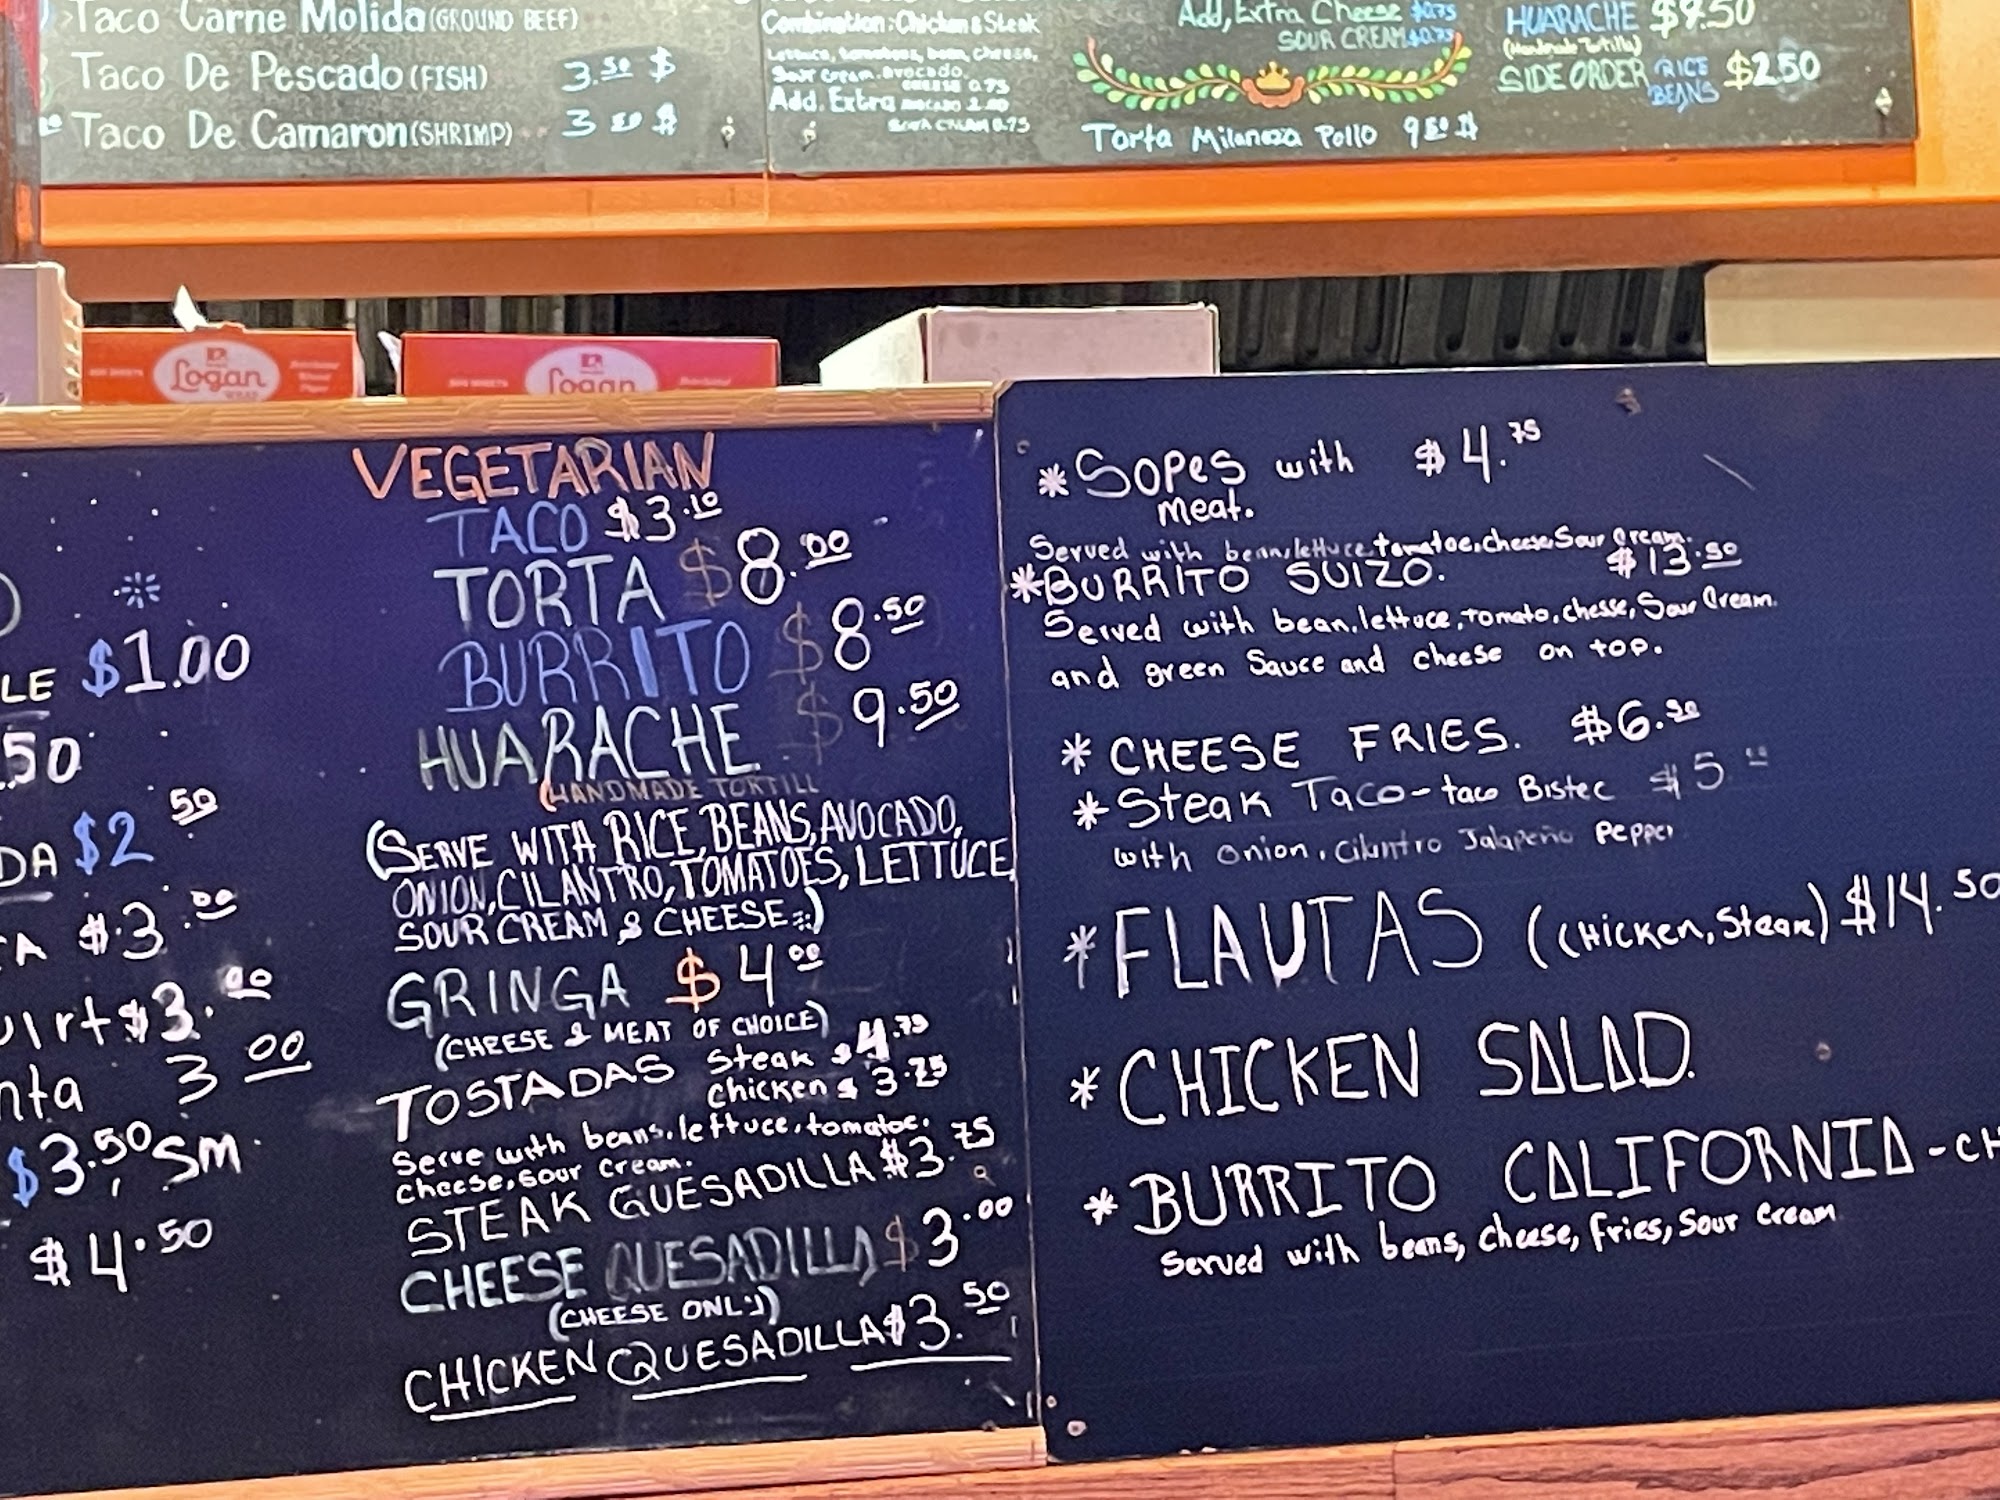 Taco Carne Molida (GROUND BEEF)
Taco De Pescado (FISH) 3.50 $
Taco De Camaron (SHRIMP) 3 50 $
Combination: Chicken & Steak
Lettuce, tomatoes, bean, cheese,
Sour cream, avocado.
CHEESE 0.75
Add. Extra AVOCADO 2.00
SOUR CREAM 0.75
Add, Extra Cheese $0.75
SOUR CREAM $0.75
Torta Milaneza Pollo 9 50 $
HUARACHE $9.50
(Handmade Tortilla)
SIDE ORDER RICE BEANS $2.50
Logan
WRAP
Logan
LE $1.00
.50
DA $2 50
A $.3.00
uirt $3.00
nta 3 00
$3.50 SM.
$4.50
VEGETARIAN
TACO $3.10
TORTA $8.00
BURRITO $8.50
HUARACHE $9.50
(HANDMADE TORTILL
(SERVE WITH RICE, BEANS, AVOCADO,
ONION, CILANTRO, TOMATOES, LETTUCE,
SOUR CREAM & CHEESE)
GRINGA $4 00
(CHEESE & MEAT OF CHOICE)
TOSTADAS Steak $4.75
Chicken $3.25
Serve with beans, lettuce, tomatoe.
cheese, sour cream.
STEAK QUESADILLA $3.75
CHEESE QUESADILLA $3.00
(CHEESE ONLY)
CHICKEN QUESADILLA $3.50
* SOPES with $4.75
meat.
Served with bean, lettuce, tomatoe, cheese, Sour Cream.
* BURRITO SUIZO. $13.50
Served with bean, lettuce, tomato, chesse, Sour Cream.
and green Sauce and cheese on top.
* CHEESE FRIES. $6.50
* Steak Taco - taco Bistec $5
with onion, cilantro Jalapeño Pepper
* FLAUTAS (CHicken, Steak) $14.50
* CHICKEN SALAD.
* BURRITO CALIFORNIA - CH
Served with beans, cheese, fries, sour cream